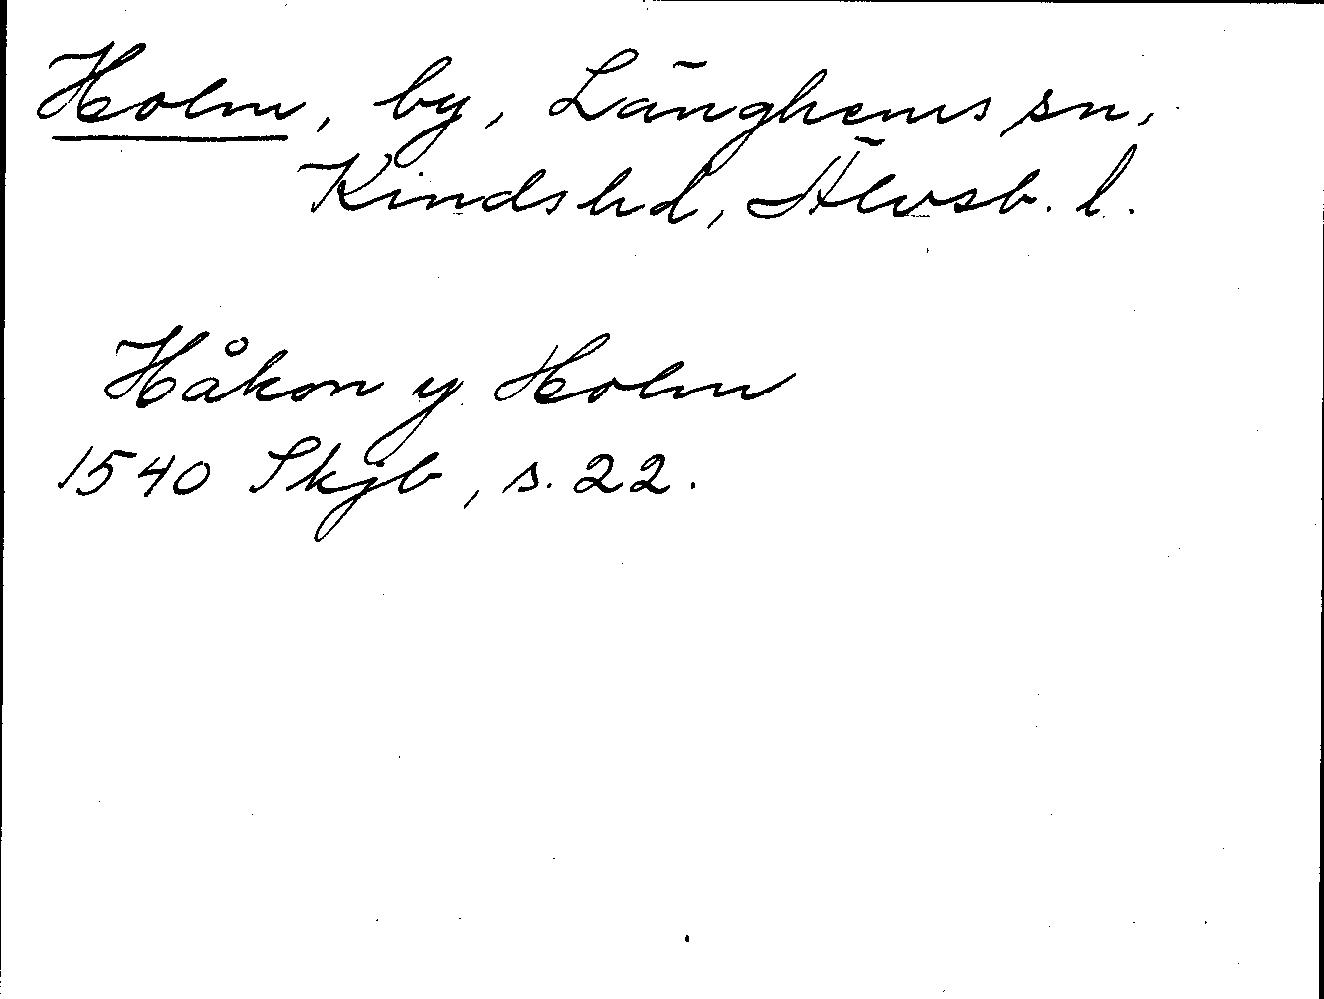 Holm, by, Länghems sn,
Kinds hd, Älvsb. l.
Håkon y Holm
1540 Skjb, s. 22.